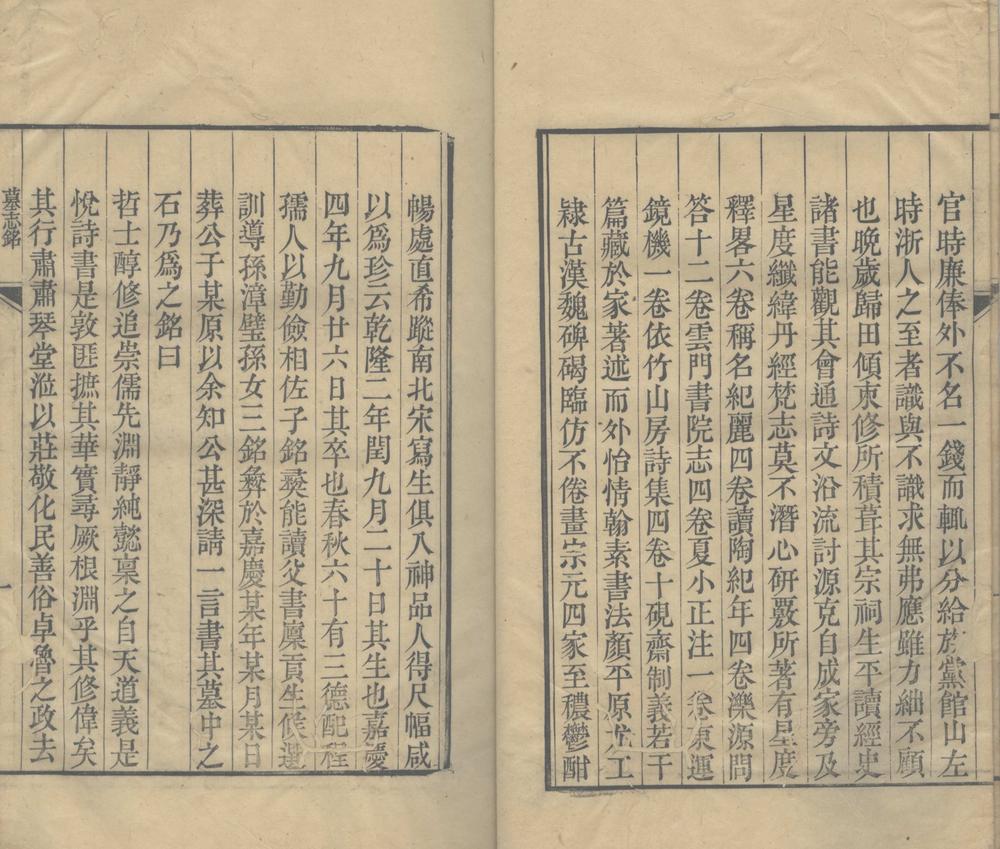 官時廉俸外不名一錢而輒以分給族黨館山左
時浙人之至者識與不識求無弗應雖力絀不顧
也晚歲歸田傾束修所積葺其宗祠生平讀經史
諸書能觀其會通詩文沿流討源克自成家旁及
星度纖緯丹經梵志莫不潛心硏覈所著有星度
釋畧六卷稱名紀麗四卷讀陶紀年四卷濼源問
答十二卷雲門書院志四卷夏小正注一卷東運
鏡機一卷依竹山房詩集四卷十硯齋制義若干
篇藏於家著述而外怡情翰素書法顏平原尤工
隷古漢魏碑碣臨仿不倦畫宗元四家至穠鬱酣
暢處直希蹤南北宋寫生俱入神品人得尺幅咸
以爲珍云乾隆二年閏九月二十日其生也嘉慶
四年九月廿六日其卒也春秋六十有三德配程
孺人以勤儉相佐子銘彝能讀父書廩貢生候選
訓導孫漳璧孫女三銘彝於嘉慶某年某月某日
葬公于某原以余知公甚深請一言書其墓中之
石乃爲之銘曰
哲士醇修追崇儒先淵靜純懿稟之自天道義是
悅詩書是敦匪摭其華實尋厥根淵乎其修偉矣
其行肅肅琴堂涖以莊敬化民善俗卓魯之政去
墓志銘
一